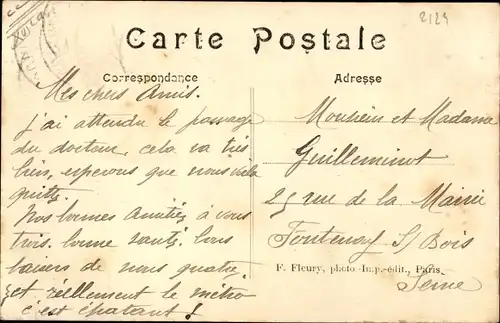 2124
Carte Postale
Correspondance
Mes chers Amis.
j'ai attendu le passage
du docteur, cela va très
bien, espérons que nous voilà
quitte.
Nos bonnes Amitiés à vous
trois. bonne santé. bons
baisers de nous quatre.
et réellement le métro
c'est épatant !
Adresse
Monsieur et Madame
Guilleminot
25 rue de la Mairie
Fontenay S/ Bois
F. Fleury, photo-Imp.-édit., Paris.
Seine